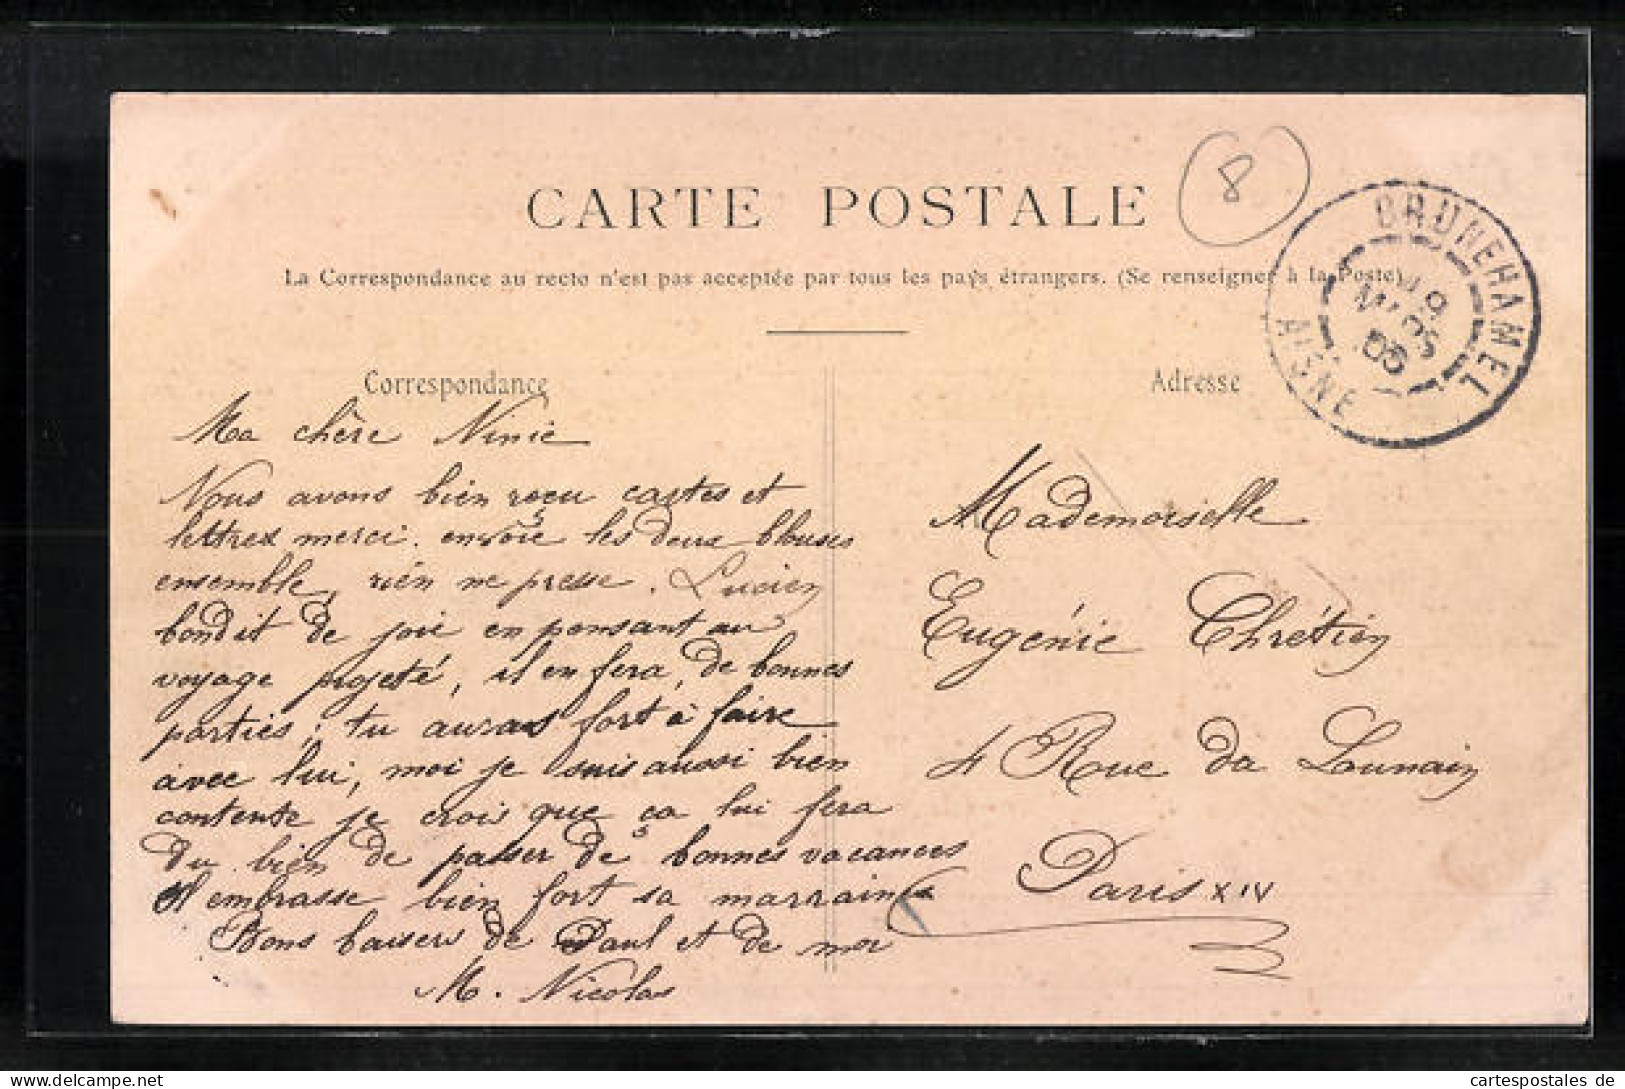 CARTE POSTALE
8
La Correspondance au recto n'est pas acceptée par tous les pays étrangers. (Se renseigner à la Poste)
BRUNEHAMEL
AISNE
Correspondance
Ma chère Ninie
Nous avons bien reçu cartes et
lettres merci. envoie les deux blouses
ensemble, rien ne presse. Lucien
bondit de joie en pensant au
voyage projeté, il en fera de bonnes
parties; tu auras fort à faire
avec lui, moi je suis aussi bien
contente je crois que ça lui fera
du bien de passer de bonnes vacances
Il embrasse bien fort sa marraine
Bons baisers de Paul et de moi
M. Nicolas
Adresse
Mademoiselle
Eugénie Chrétien
4 Rue du Lunain
Paris XIV
cartespostales.de